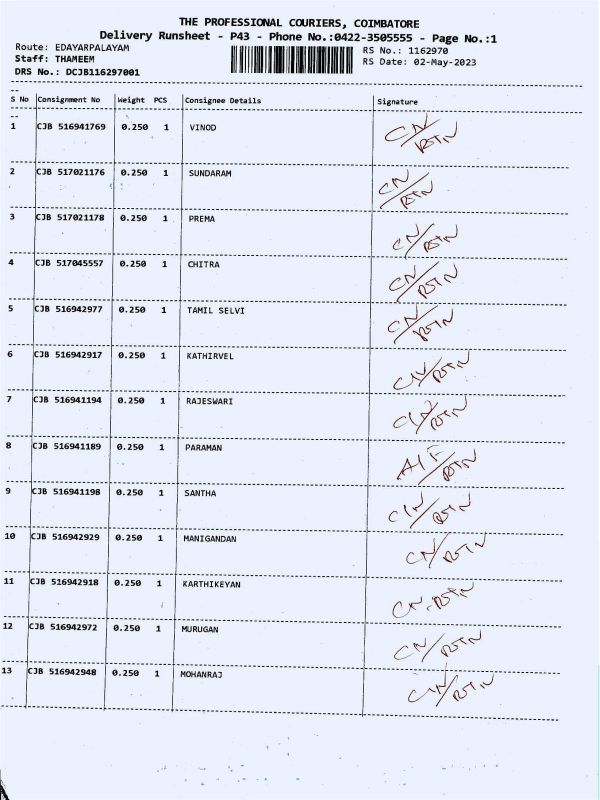 THE PROFESSIONAL COURIERS, COIMBATORE
Delivery Runsheet - P43 - Phone No.:0422-3505555 - Page No.:1
Route: EDAYARPALAYAM RS No.: 1162970
Staff: THAMEEM RS Date: 02-May-2023
DRS No.: DCJB116297001
S No Consignment No Weight PCS Consignee Details Signature
1 CJB 516941769 0.250 1 VINOD CN/RTN
2 CJB 517021176 0.250 1 SUNDARAM CN/RTN
3 CJB 517021178 0.250 1 PREMA CN/RTN
4 CJB 517045557 0.250 1 CHITRA CN/RTN
5 CJB 516942977 0.250 1 TAMIL SELVI CN/RTN
6 CJB 516942917 0.250 1 KATHIRVEL CN/RTN
7 CJB 516941194 0.250 1 RAJESWARI CN/RTN
8 CJB 516941189 0.250 1 PARAMAN RTN
9 CJB 516941198 0.250 1 SANTHA CN/RTN
10 CJB 516942929 0.250 1 MANIGANDAN CN/RTN
11 CJB 516942918 0.250 1 KARTHIKEYAN CN-RTN
12 CJB 516942972 0.250 1 MURUGAN CN/RTN
13 CJB 516942948 0.250 1 MOHANRAJ CN/RTN